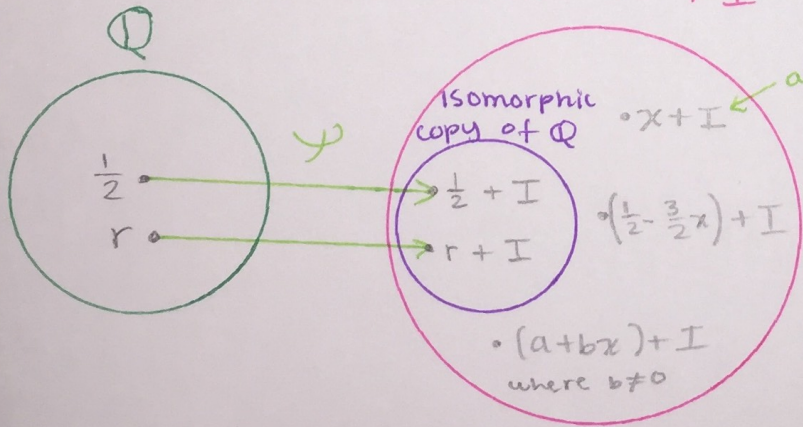 ℚ
Isomorphic
copy of ℚ
φ
1/2
r
1/2 + I
r + I
x + I
a
(1/2 - 3/2 x) + I
(a+bx) + I
where b≠0